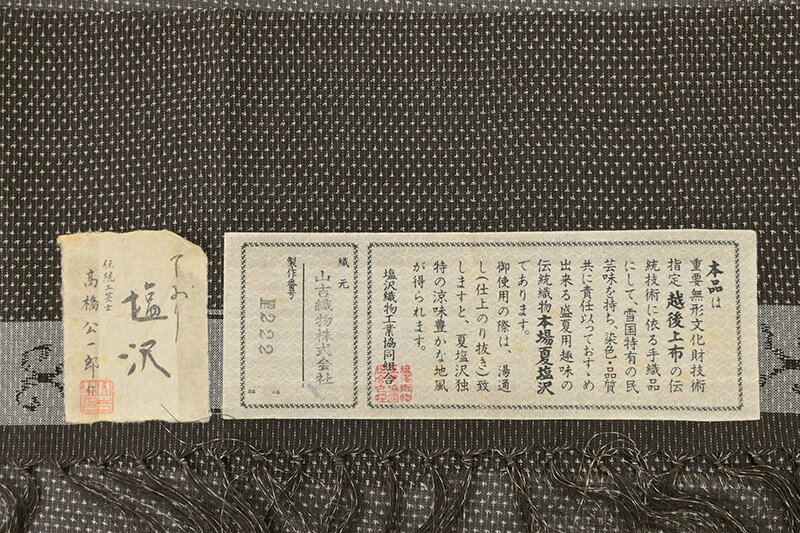 本品は
重要無形文化財技術
指定越後上布の伝
統技術に依る手織品
にして、雪国特有の民
芸味を持ち、染色・品質
共に責任以っておすゝめ
出来る盛夏用趣味の
伝統織物本場夏塩沢
であります。
御使用の際は、湯通
し(仕上のり抜き)致
しますと、夏塩沢独
特の涼味豊かな地風
が得られます。
塩沢織物工業協同組合
織元
山吉織物株式会社
製作番号
E2222
ており
塩沢
伝統工芸士
高橋公一郎作